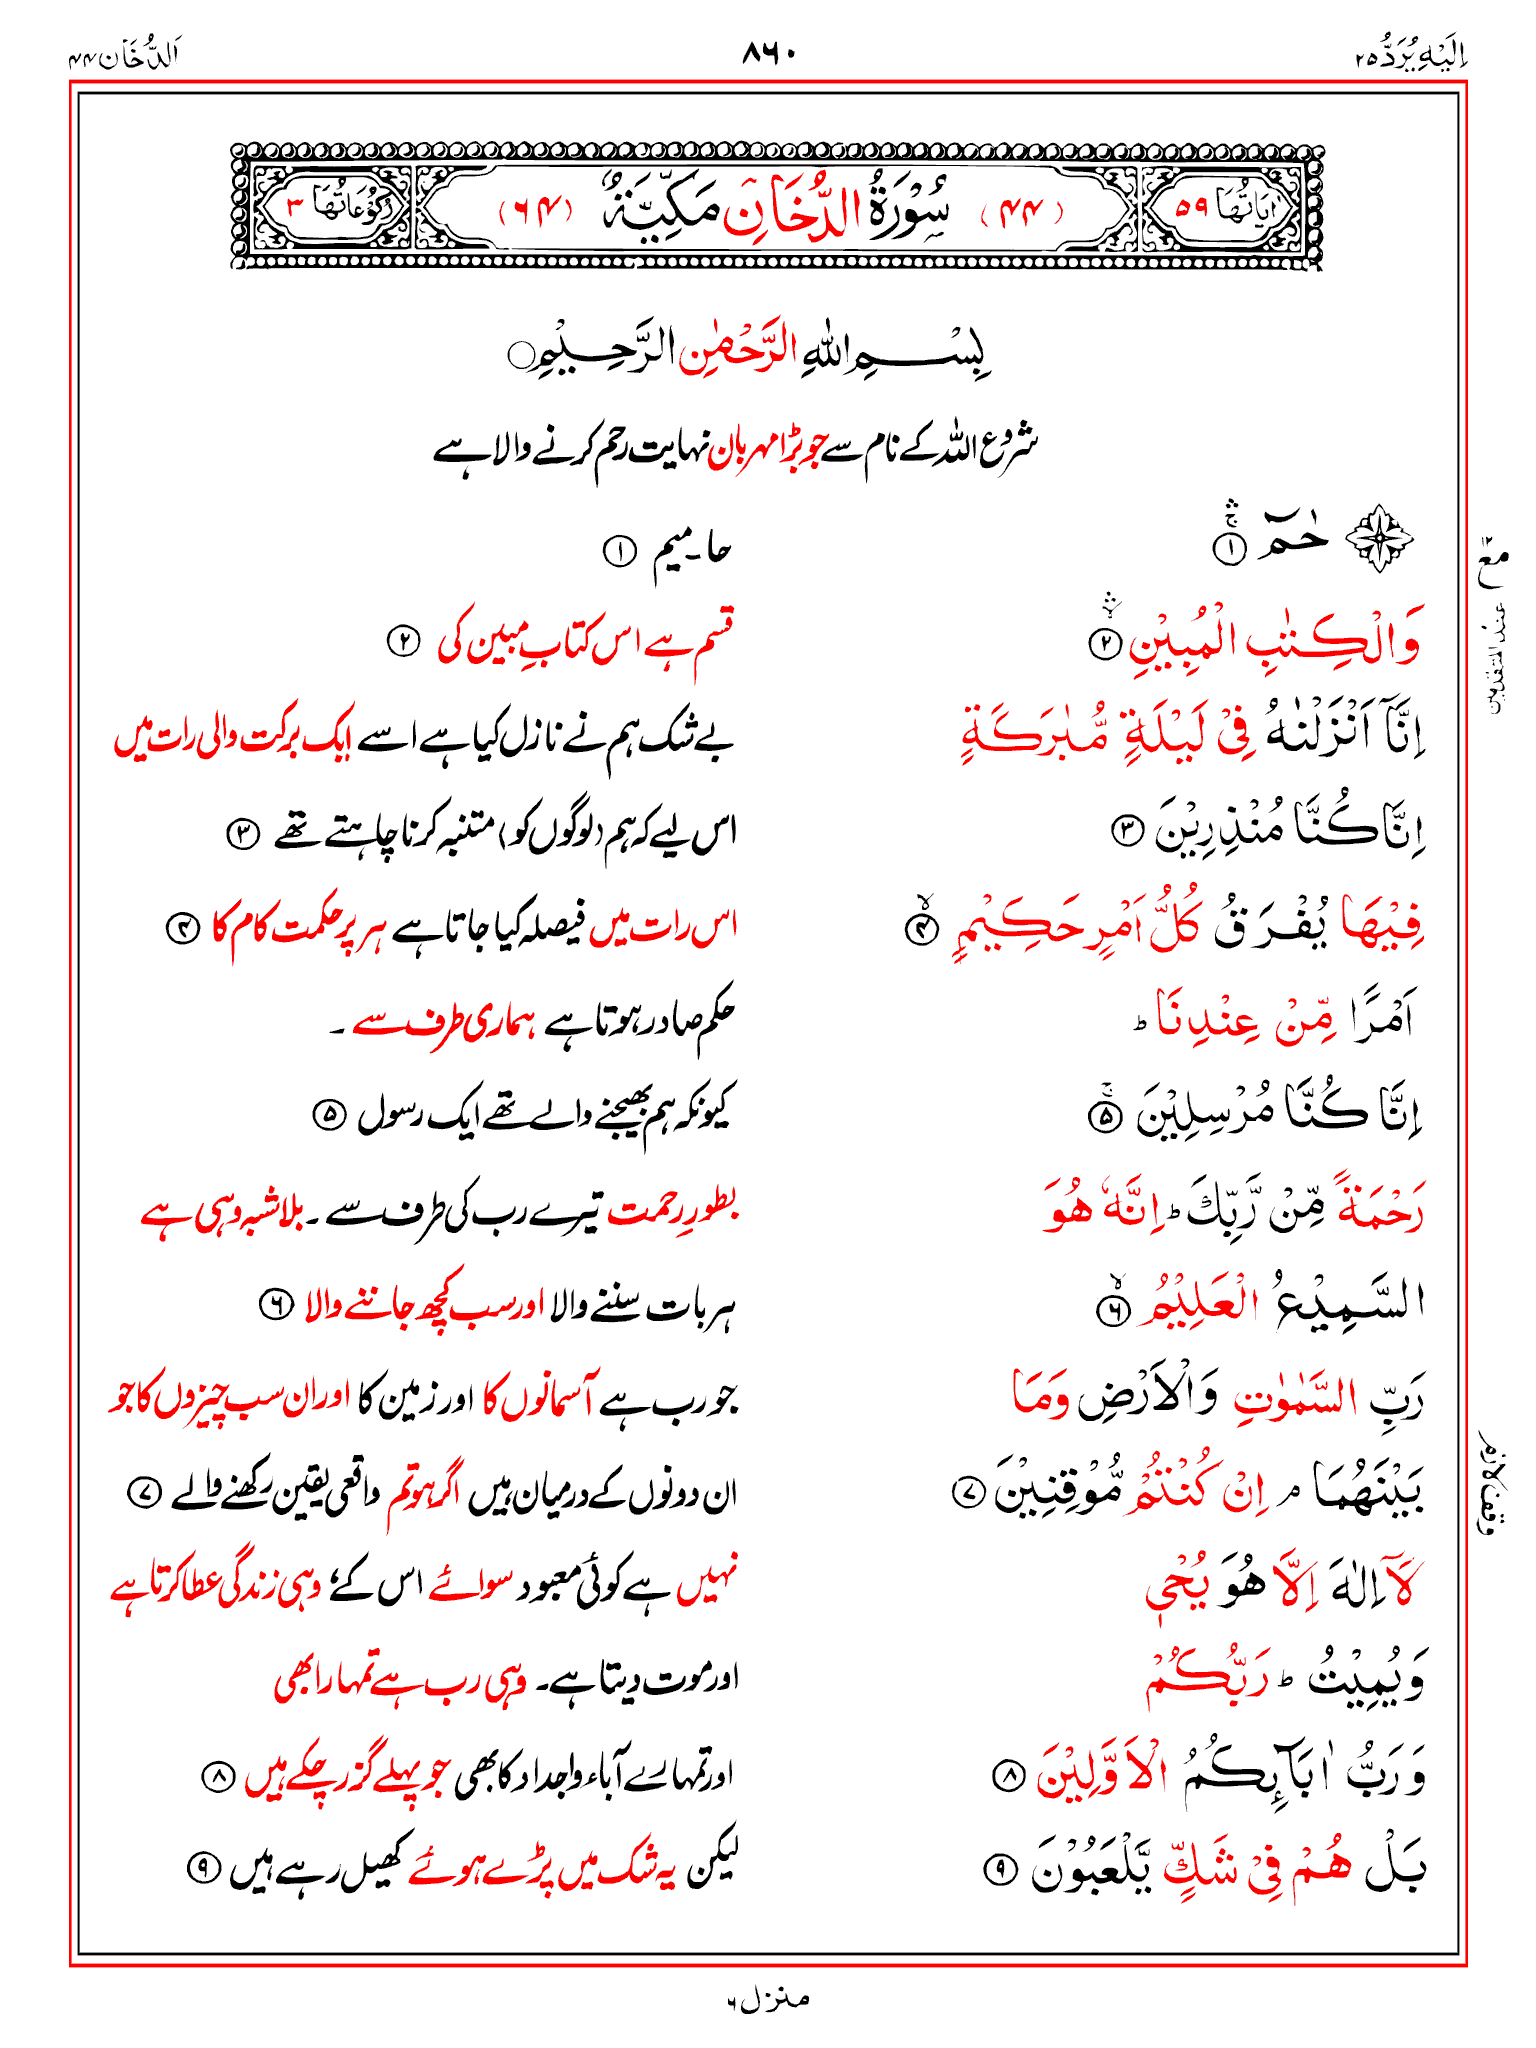 اِلَيْهِ يُرَدُّ ۲۵
۸۶۰
اَلدُّخَان ۴۴
اٰيَاتُهَا ۵۹
(۴۴) سُوْرَةُ الدُّخَانِ مَكِّيَّةٌ (۶۴)
رُكُوْعَاتُهَا ۳
بِسْمِ اللّٰهِ الرَّحْمٰنِ الرَّحِيْمِ ○
شروع اللہ کے نام سے جو بڑا مہربان نہایت رحم کرنے والا ہے
حٰمٓ ۱
حا۔ میم ۱
وَالْكِتٰبِ الْمُبِيْنِ ۲
قسم ہے اس کتابِ مبین کی ۲
اِنَّآ اَنْزَلْنٰهُ فِيْ لَيْلَةٍ مُّبٰرَكَةٍ
بے شک ہم نے نازل کیا ہے اسے ایک برکت والی رات میں
اِنَّا كُنَّا مُنْذِرِيْنَ ۳
اس لیے کہ ہم (لوگوں کو) متنبہ کرنا چاہتے تھے ۳
فِيْهَا يُفْرَقُ كُلُّ اَمْرٍ حَكِيْمٍ ۴
اس رات میں فیصلہ کیا جاتا ہے ہر پر حکمت کام کا ۴
اَمْرًا مِّنْ عِنْدِنَا ؕ
حکم صادر ہوتا ہے ہماری طرف سے ۔
اِنَّا كُنَّا مُرْسِلِيْنَ ۵
کیونکہ ہم بھیجنے والے تھے ایک رسول ۵
رَحْمَةً مِّنْ رَّبِّكَ ؕ اِنَّهٗ هُوَ
بطورِ رحمت تیرے رب کی طرف سے ۔ بلاشبہ وہی ہے
السَّمِيْعُ الْعَلِيْمُ ۶
ہر بات سننے والا اور سب کچھ جاننے والا ۶
رَبِّ السَّمٰوٰتِ وَالْاَرْضِ وَمَا
جو رب ہے آسمانوں کا اور زمین کا اور ان سب چیزوں کا جو
بَيْنَهُمَا ۘ اِنْ كُنْتُمْ مُّوْقِنِيْنَ ۷
ان دونوں کے درمیان ہیں اگر ہو تم واقعی یقین رکھنے والے ۷
لَآ اِلٰهَ اِلَّا هُوَ يُحْيٖ
نہیں ہے کوئی معبود سوائے اس کے، وہی زندگی عطا کرتا ہے
وَيُمِيْتُ ؕ رَبُّكُمْ
اور موت دیتا ہے۔ وہی رب ہے تمہارا بھی
وَرَبُّ اٰبَآئِكُمُ الْاَوَّلِيْنَ ۸
اور تمہارے آباء و اجداد کا بھی جو پہلے گزر چکے ہیں ۸
بَلْ هُمْ فِيْ شَكٍّ يَّلْعَبُوْنَ ۹
لیکن یہ شک میں پڑے ہوئے کھیل رہے ہیں ۹
عند المتقدمین
وقف لازم
منزل ۶